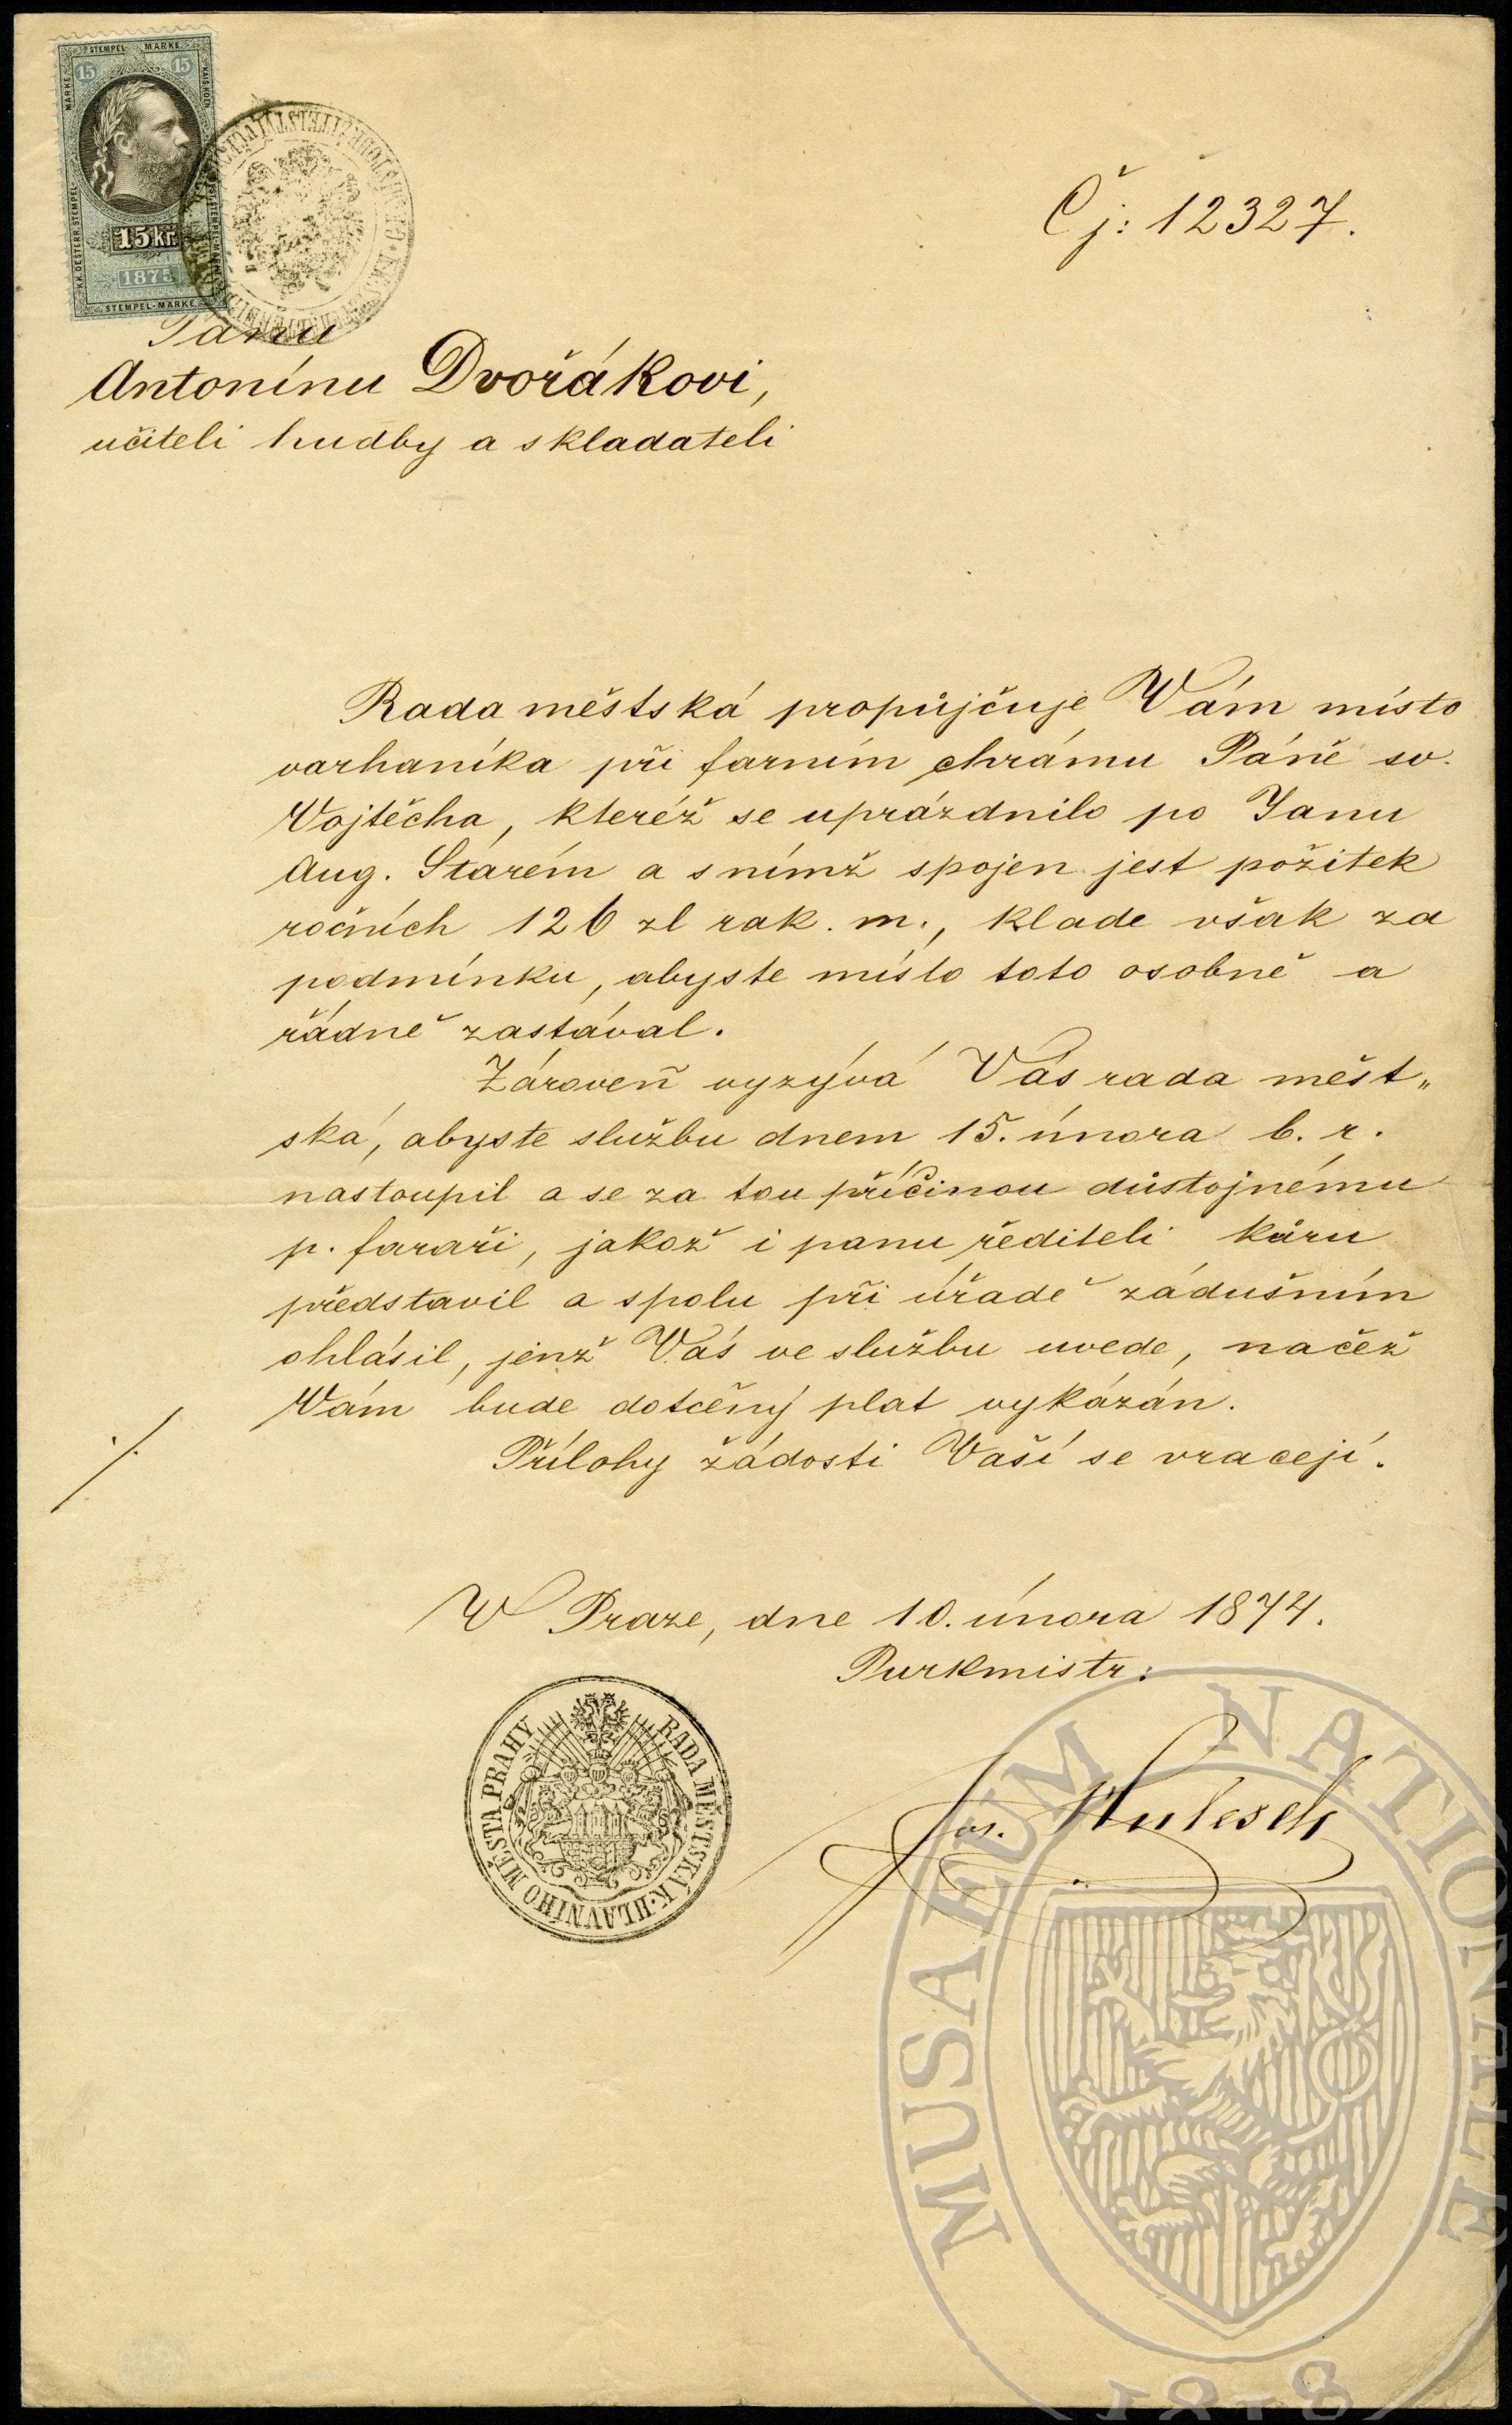 STEMPEL MARKE
15 15
15 kr.
1875
STEMPEL-MARKE
Čj: 12327.
Panu
Antonínu Dvořákovi,
učiteli hudby a skladateli
Rada městská propůjčuje Wám místo
varhaníka při farním chrámu Páně sv.
Vojtěcha, kteréž se uprázdnilo po Janu
Aug. Starém a s nímž spojen jest požitek
ročních 126 zl rak. m., klade však za
podmínku, abyste místo toto osobně a
řádně zastával.
Zároveň vyzývá Vás rada měst„
ská, abyste službu dnem 15. února b. r.
nastoupil a se za tou příčinou důstojnému
p. faráři, jakož i panu řediteli kůru
představil a spolu při úřadě zádušním
ohlásil, jenž Vás ve službu uvede, načež
Wám bude dotčený plat vykázán.
./. Přílohy žádosti Vaší se vracejí.
W Praze, dne 10. února 1874.
Purkmistr:
RADA MĚSTSKÁ K. HLAVNÍHO MĚSTA PRAHY
MUSAEUM NATIONALE
1818